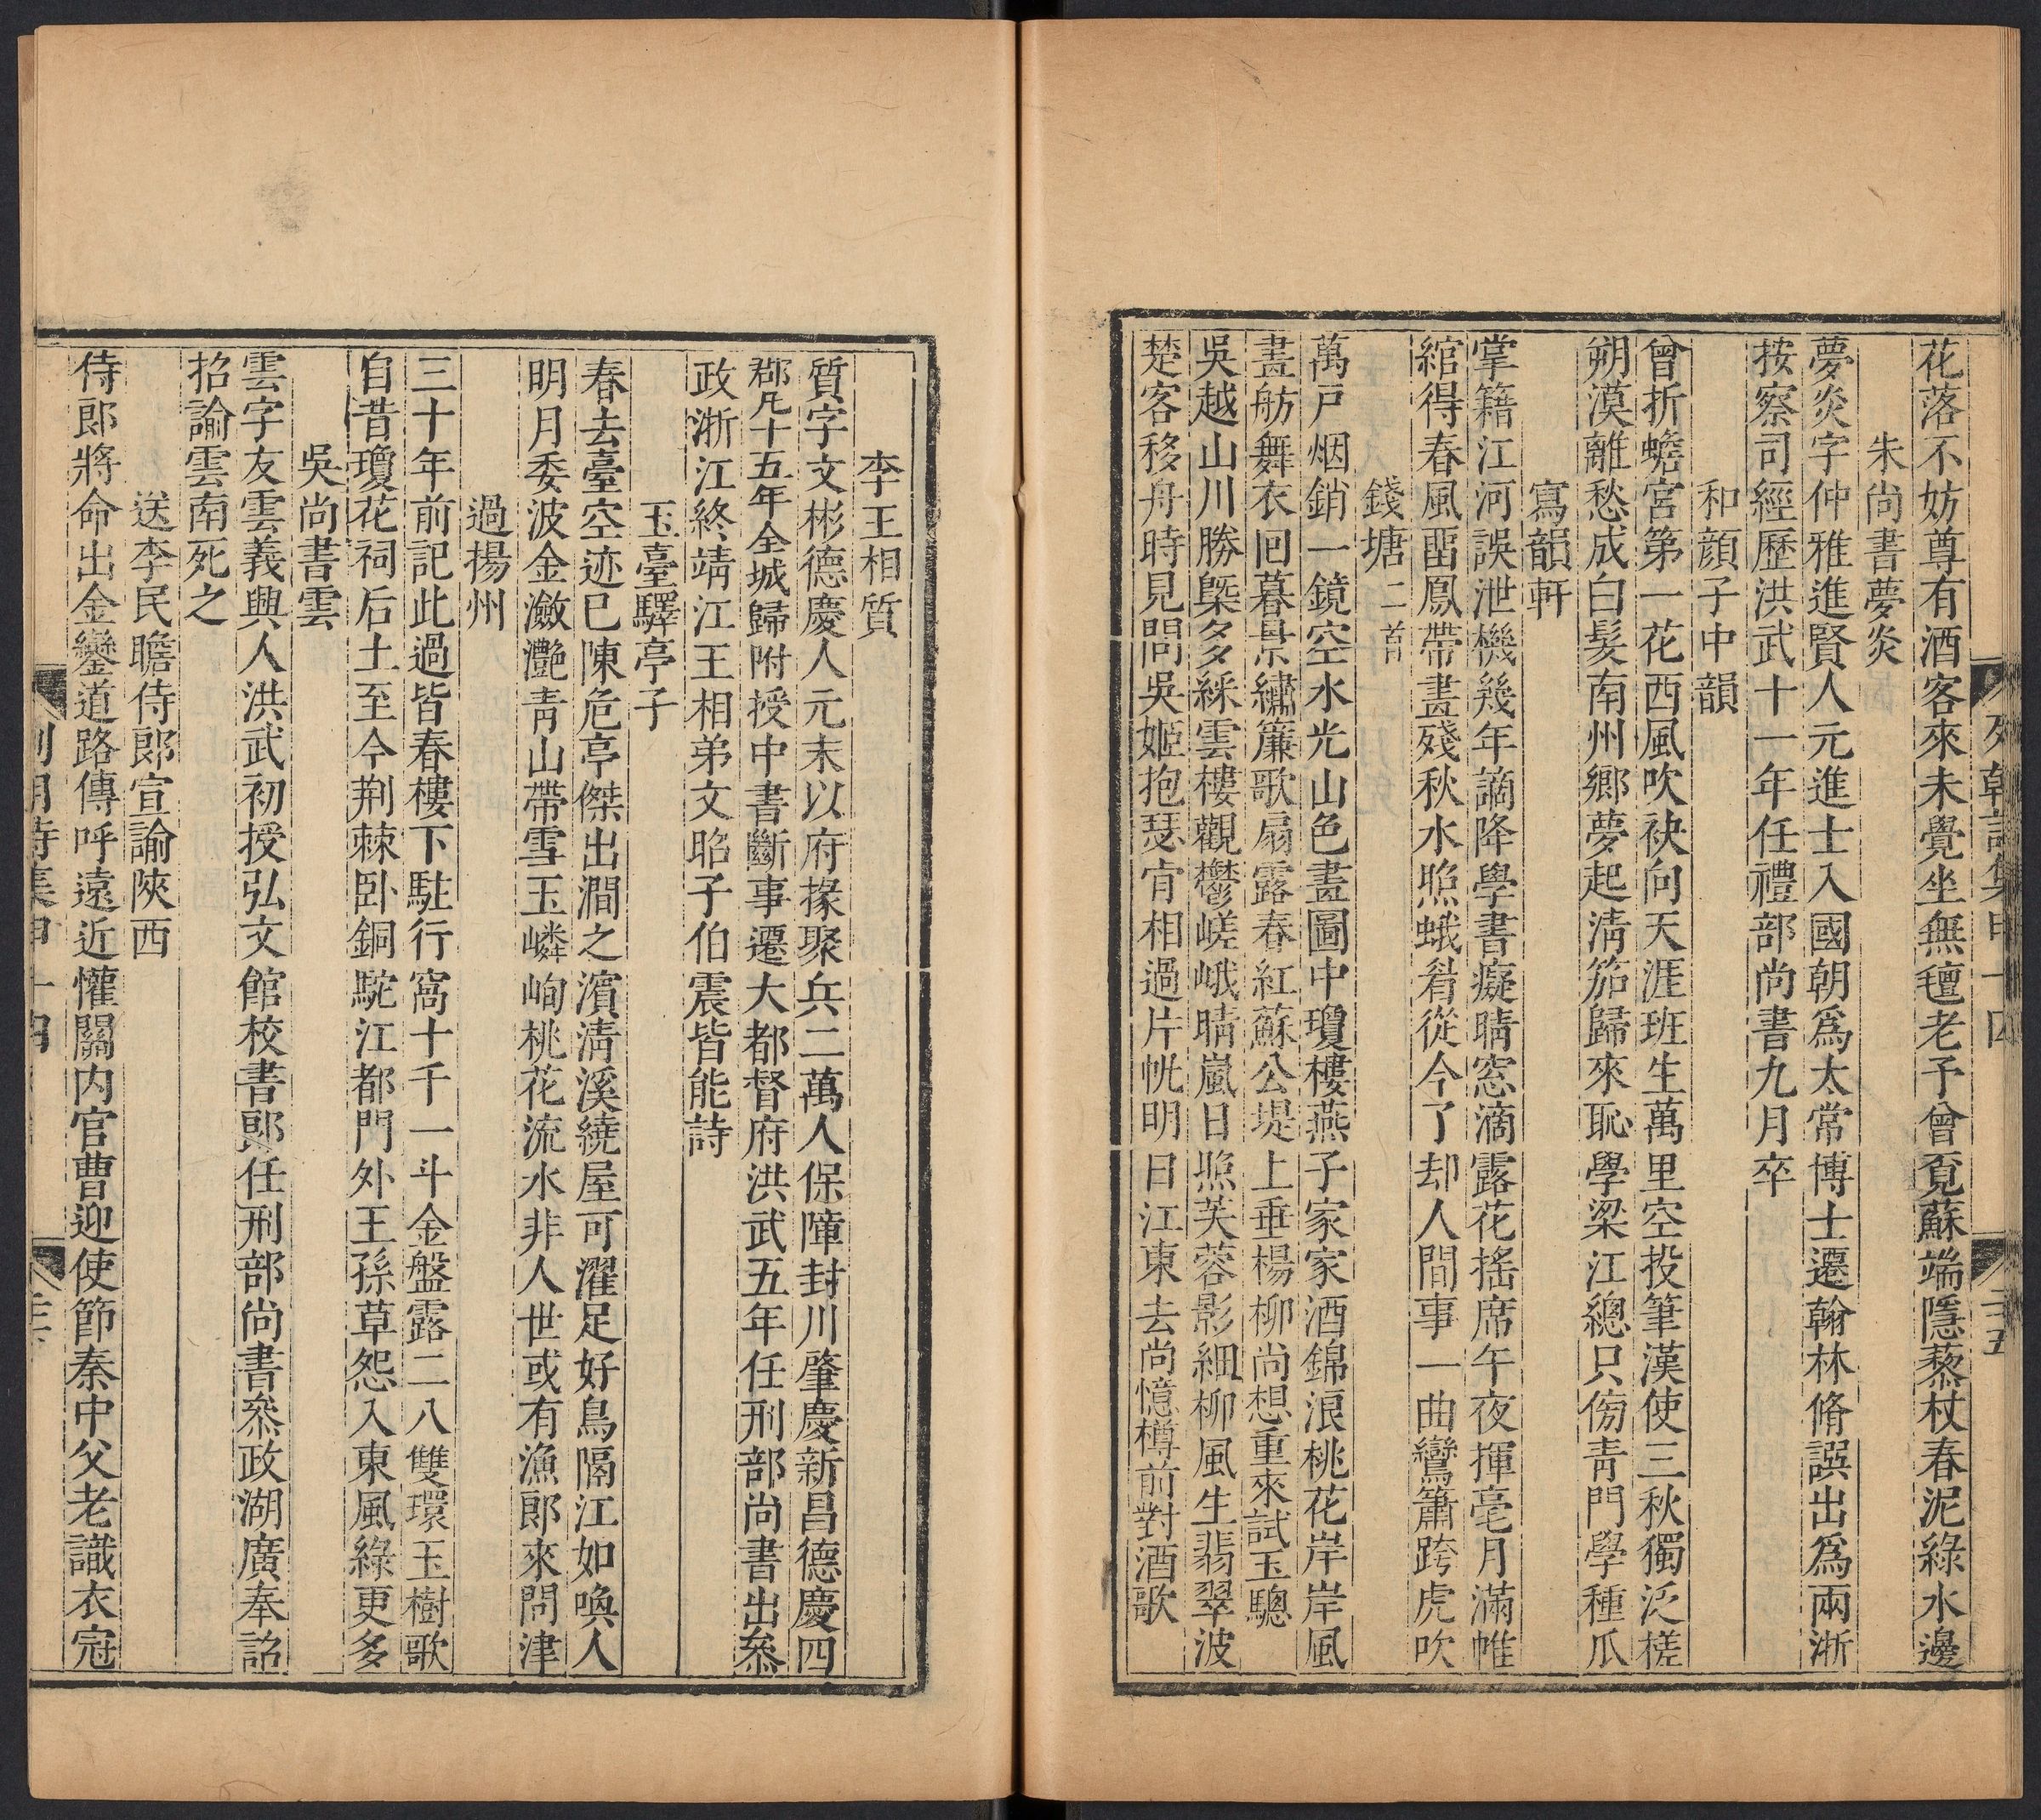 列朝詩集甲十四
二五
花落不妨尊有酒客來未覺坐無氊老予曾覓蘇端隱藜杖春泥綠水邊
朱尚書夢炎
夢炎字仲雅進賢人元進士入國朝爲太常博士遷翰林脩譔出爲兩浙
按察司經歷洪武十一年任禮部尚書九月卒
和顔子中韻
曾折蟾宮第一花西風吹袂向天涯班生萬里空投筆漢使三秋獨泛槎
朔漠離愁成白髮南州鄉夢起淸笳歸來恥學梁江總只傍靑門學種瓜
寫韻軒
掌籍江河誤泄機幾年謫降學書癡晴窓滴露花搖席午夜揮毫月滿帷
綰得春風酉鳳帶畫殘秋水照蛾眉從今了却人間事一曲鸞簫跨虎吹
錢塘二首
萬戸烟銷一鏡空水光山色畫圖中瓊樓燕子家家酒錦浪桃花岸岸風
畫舫舞衣囘暮景繡簾歌扇露春紅蘇公堤上垂楊柳尚想重來試玉驄
吳越山川勝槩多綵雲樓觀鬱嵯峨晴嵐日照芙蓉影細柳風生翡翠波
楚客移舟時見問吳姬抱瑟肯相過片帆明日江東去尚憶樽前對酒歌
李王相質
質字文彬德慶人元末以府掾聚兵二萬人保障封川肇慶新昌德慶四
郡凡十五年全城歸附授中書斷事遷大都督府洪武五年任刑部尚書出叅
政浙江終靖江王相弟文昭子伯震皆能詩
玉臺驛亭子
春去臺空迹巳陳危亭傑出澗之濱淸溪繞屋可濯足好鳥隔江如喚人
明月委波金瀲灧靑山帶雪玉嶙峋桃花流水非人世或有漁郎來問津
過揚州
三十年前記此過皆春樓下駐行窩十千一斗金盤露二八雙環玉樹歌
自昔瓊花祠后土至今荆棘卧銅駝江都門外王孫草怨入東風綠更多
吳尚書雲
雲字友雲義興人洪武初授弘文館校書郎任刑部尚書叅政湖廣奉詔
招諭雲南死之
送李民瞻侍郎宣諭陝西
侍郎將命出金鑾道路傳呼遠近懽關内官曹迎使節秦中父老識衣冠
列朝詩集甲十四